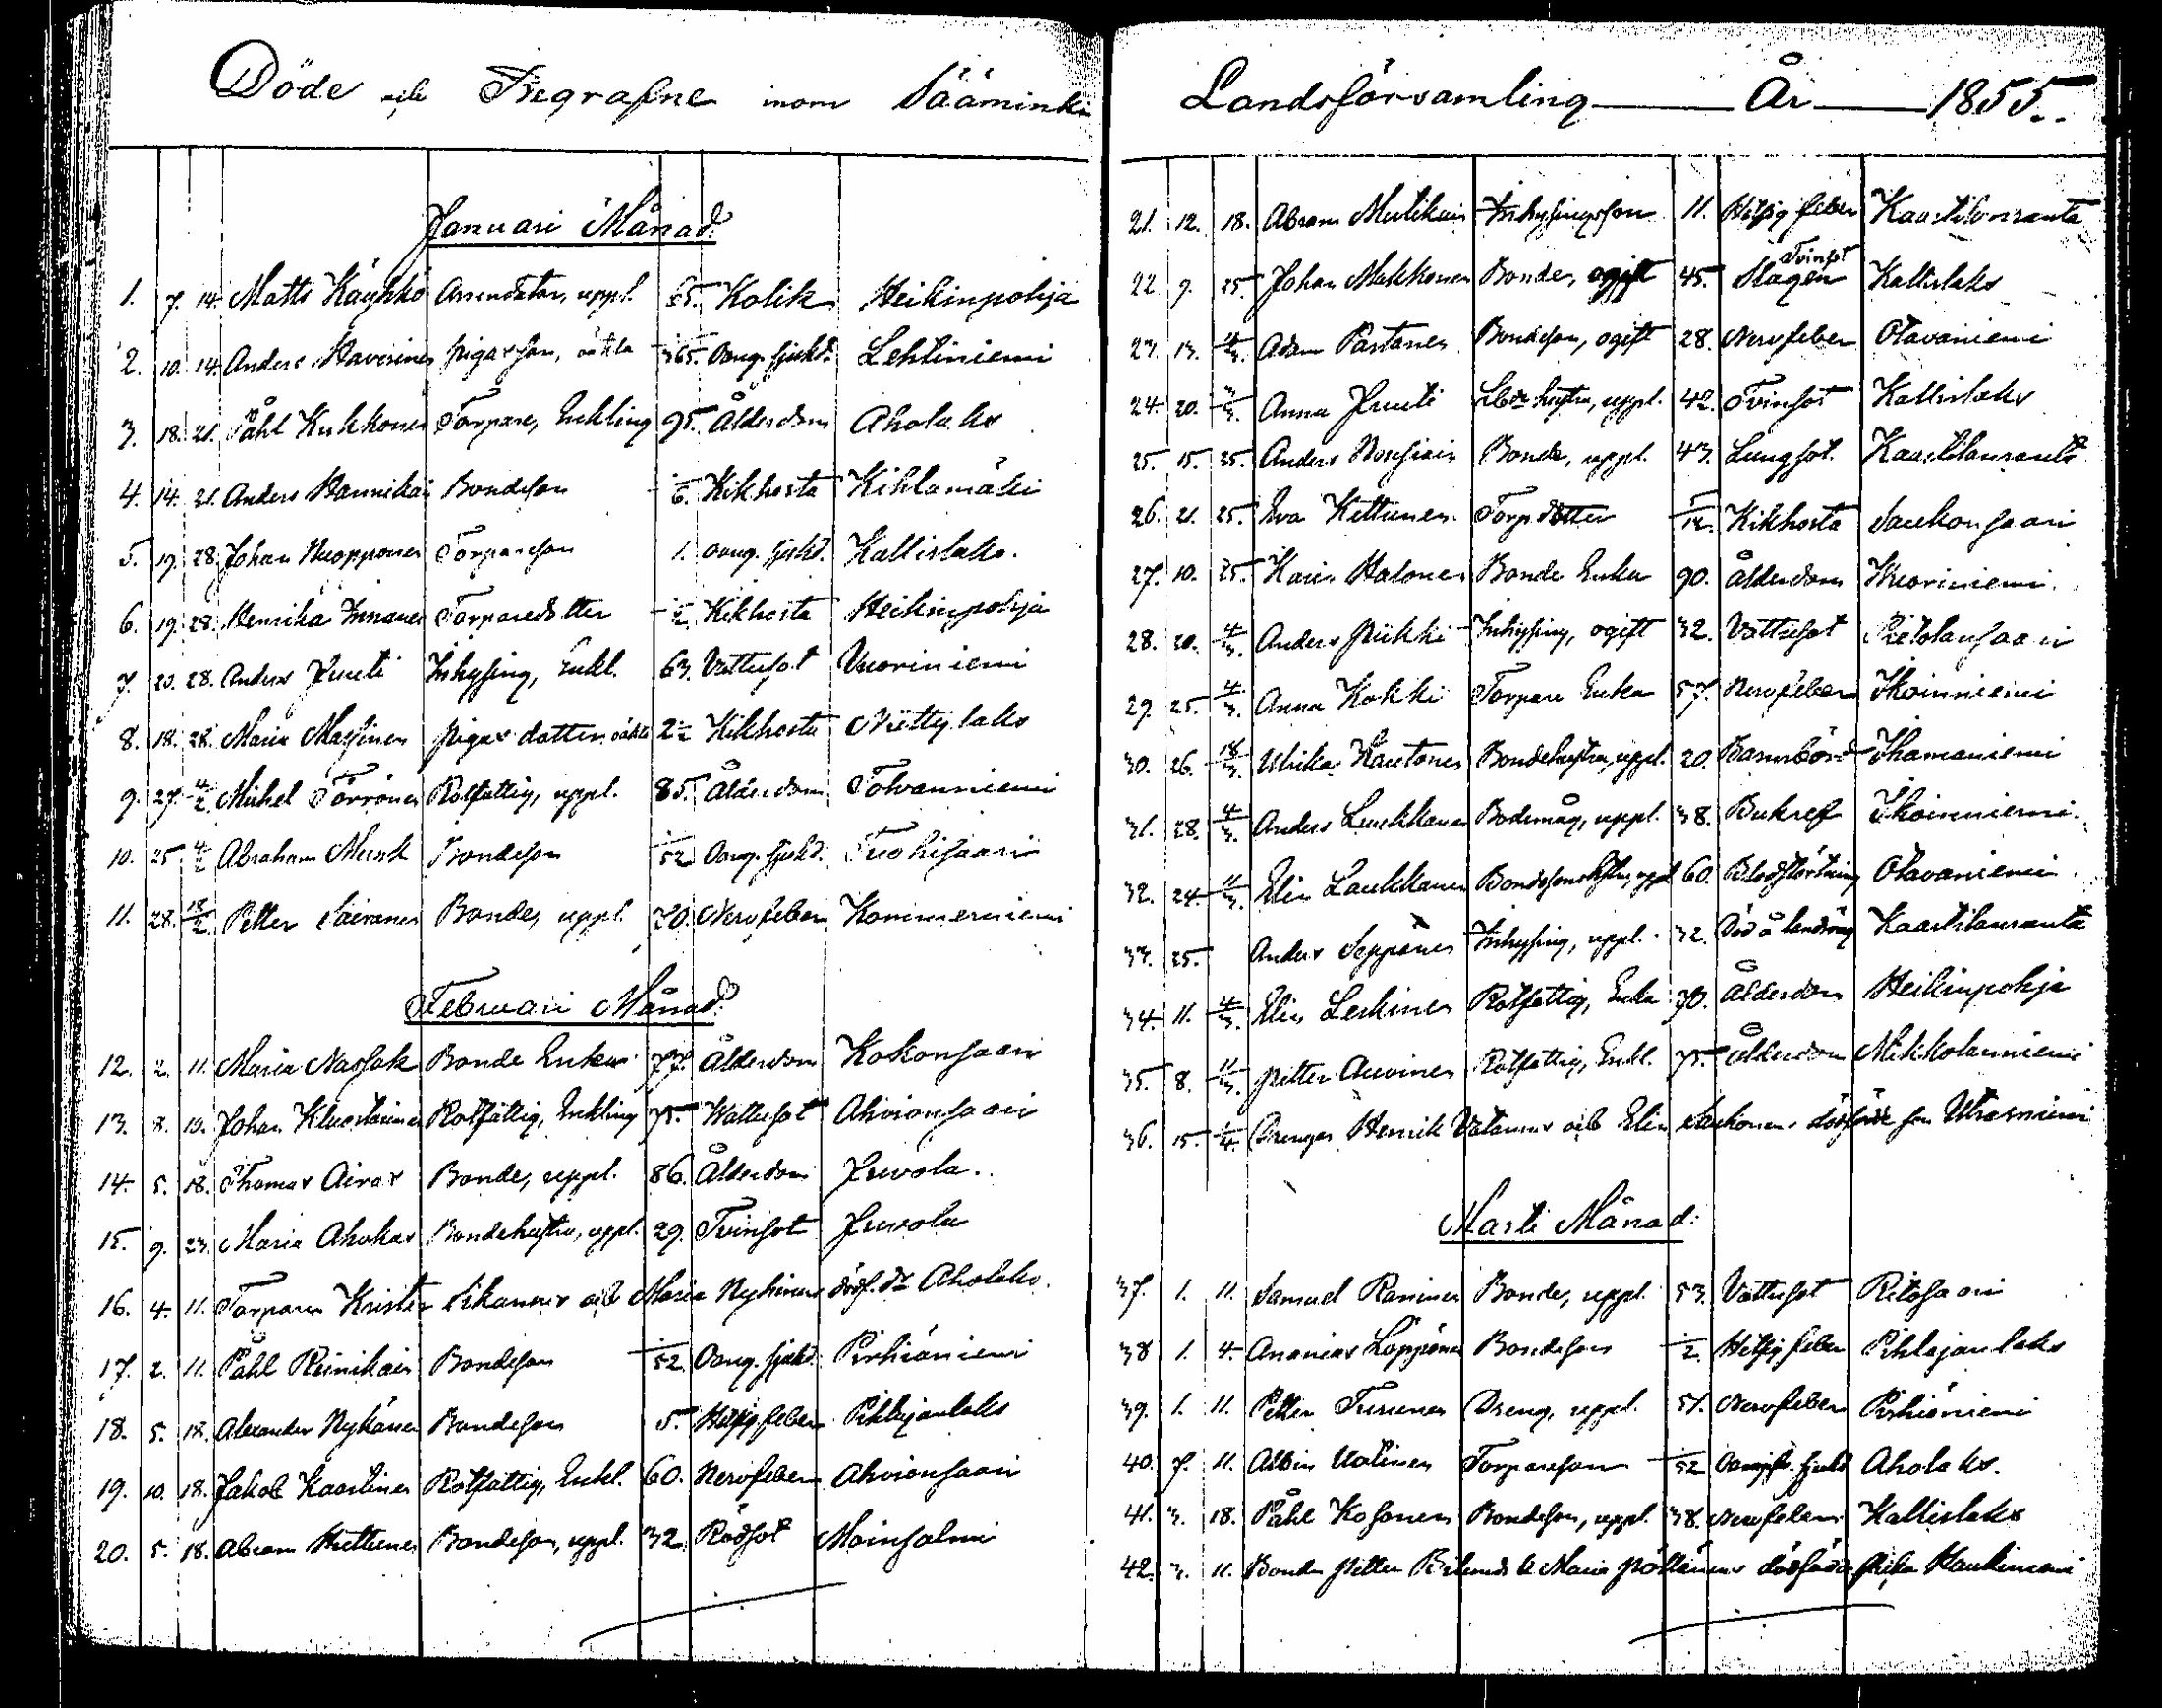 Döde och Begrafne inom Sääminki Landsförsamling År 1855.
Januari Månad.
1. 7. 14. Matts Käyhkö Arrendator, uppl. 65. Kolik Heikinpohja
2. 10. 14. Anders Haverinen pigas son, oäkta 1/365. Oang. sjukd. Lehtiniemi
3. 18. 21. Påhl Kukkonen Torpare, Enkling 95. Ålderdom Aholaks
4. 14. 21. Anders Hannikain Bondeson 1/6. Kikhosta Kiklamäki
5. 19. 28. Johan Nuopponen Torpareson 1. oang. sjukd. Kallislaks.
6. 19. 28. Henrika Immonen Torparedotter 1/2 Kikhosta Heikinpohja
7. 20. 28. Anders Juuti Inhysing, Enkl. 63. Vattusot Vuoriniemi
8. 18. 28. Maria Massinen pigas dotter oäkta 2 1/2 Kikhosta Niittylaks
9. 27. 4/2 Michel Törrönen Rotfattig, uppl. 85. Ålderdom Tolvanniemi
10. 25 4/2 Abraham Munk Bondeson 1/52 Oang. sjukd. Tuohisaari
11. 28. 18/2 Petter Sairanen Bonde, uppl. 20. Nervfeber Kommerniemi
Februari Månad.
12. 2. 11. Maria Nassak Bonde Enka 77. Ålderdom Kokonsaari
13. 8. 10. Johan Kluostarinen Rotfattig, Enkling 75. Wattusot Ahvionsaari
14. 5. 18. Thomas Airas Bonde, uppl. 86. Ålderdom Juvola.
15. 9. 23. Maria Ahokas Bondehustru, uppl. 29. Tvinsot Juvola
16. 4. 11. Torparen Krister Sikanens och Maria Nykänens dödf. Dr Aholaks.
17. 2. 11. Påhl Reinikain Bondeson 1/52. Oang. sjukd. Pirhiäniemi
18. 5. 18. Alexander Nykänen Bondeson 5. Hetsig feber Pihlajanlaks
19. 10. 18. Jakob Kaartinen Rotfattig, Enkl. 60. Nervfeber Ahvionsaari
20. 5. 18. Abram Huttunen Bondeson, uppl. 32. Rödsot Moinsalmi
21. 12. 18. Abram Mutikain Inhysingsson 11. Hetsig feber Kaartilanranta
22. 9. 25. Johan Makkonen Bonde, ogift 45. Slagen Tvinsot Kallislaks
23. 13. 4/3. Adam Partanen Bondeson, ogift 28. Nervfeber Otavaniemi
24. 20. 3/3. Anna Juuti hustru, uppl. 42. Tvinsot Kallislaks
25. 15. 25. Anders Nousiain Bonde, uppl. 43. Lungsot. Kaartilanranta
26. 21. 25. Eva Kettunen Torp dotter 5/12. Kikhosta Saukonsaari
27. 10. 25. Karin Halonen Bonde Enka 90. Ålderdom Vuoriniemi.
28. 20. 4/3. Anders Piikki Inhysing, ogift 32. Vattusot Pietolansaari
29. 25. 4/3. Anna Kokki Torpare Enka 57. Nervfeber Ikoinniemi
30. 26. 18/3. Ulrika Kautonen Bondehustru, uppl. 20. Barnsbörd Ihamaniemi
31. 28. 4/3. Anders Luukkanen Bodemåg, uppl. 38. Bukref Ikoinniemi.
32. 24. 11/3. Elin Laukkanen Bondesons hustru, uppl 60. Blodstörtning Otavaniemi.
33. 25. Anders Seppänen Inhysing, uppl. 32. Död å landsväg Kaartilanranta
34. 11. 4/3. Elin Leskinen Rotfattig, Enka 70. Ålderdom Heikinpohja
35. 8. 11/3. Petter Auvinen Rotfattig, Enkl. 75. Ålderdom Mikkolanniemi
36. 15. 1/4. Drengen Henrik Vatanens och Elin Saukonens dödfödde son Utrasniemi
Marti Månad:
37. 1. 11. Samuel Raninen Bonde, uppl. 53. Vattusot Ritosaari
38 1. 4. Ananias Loppönen Bondeson 1/2. Hetsig feber Pihlajanlaks
39. 1. 11. Petter Turunen Dreng, uppl. 51. Nervfeber Pirhiäniemi
40. 7. 11. Albin Valinen Torpareson 1/52 sjukd Aholaks.
41. 3. 18. Påhl Kosonen Bondeson, uppl. 38. Nervfeber Kallislaks
42. 3. 11. Bonden Petter & Maria Pöllänens dödfödda flicka Haukiniemi